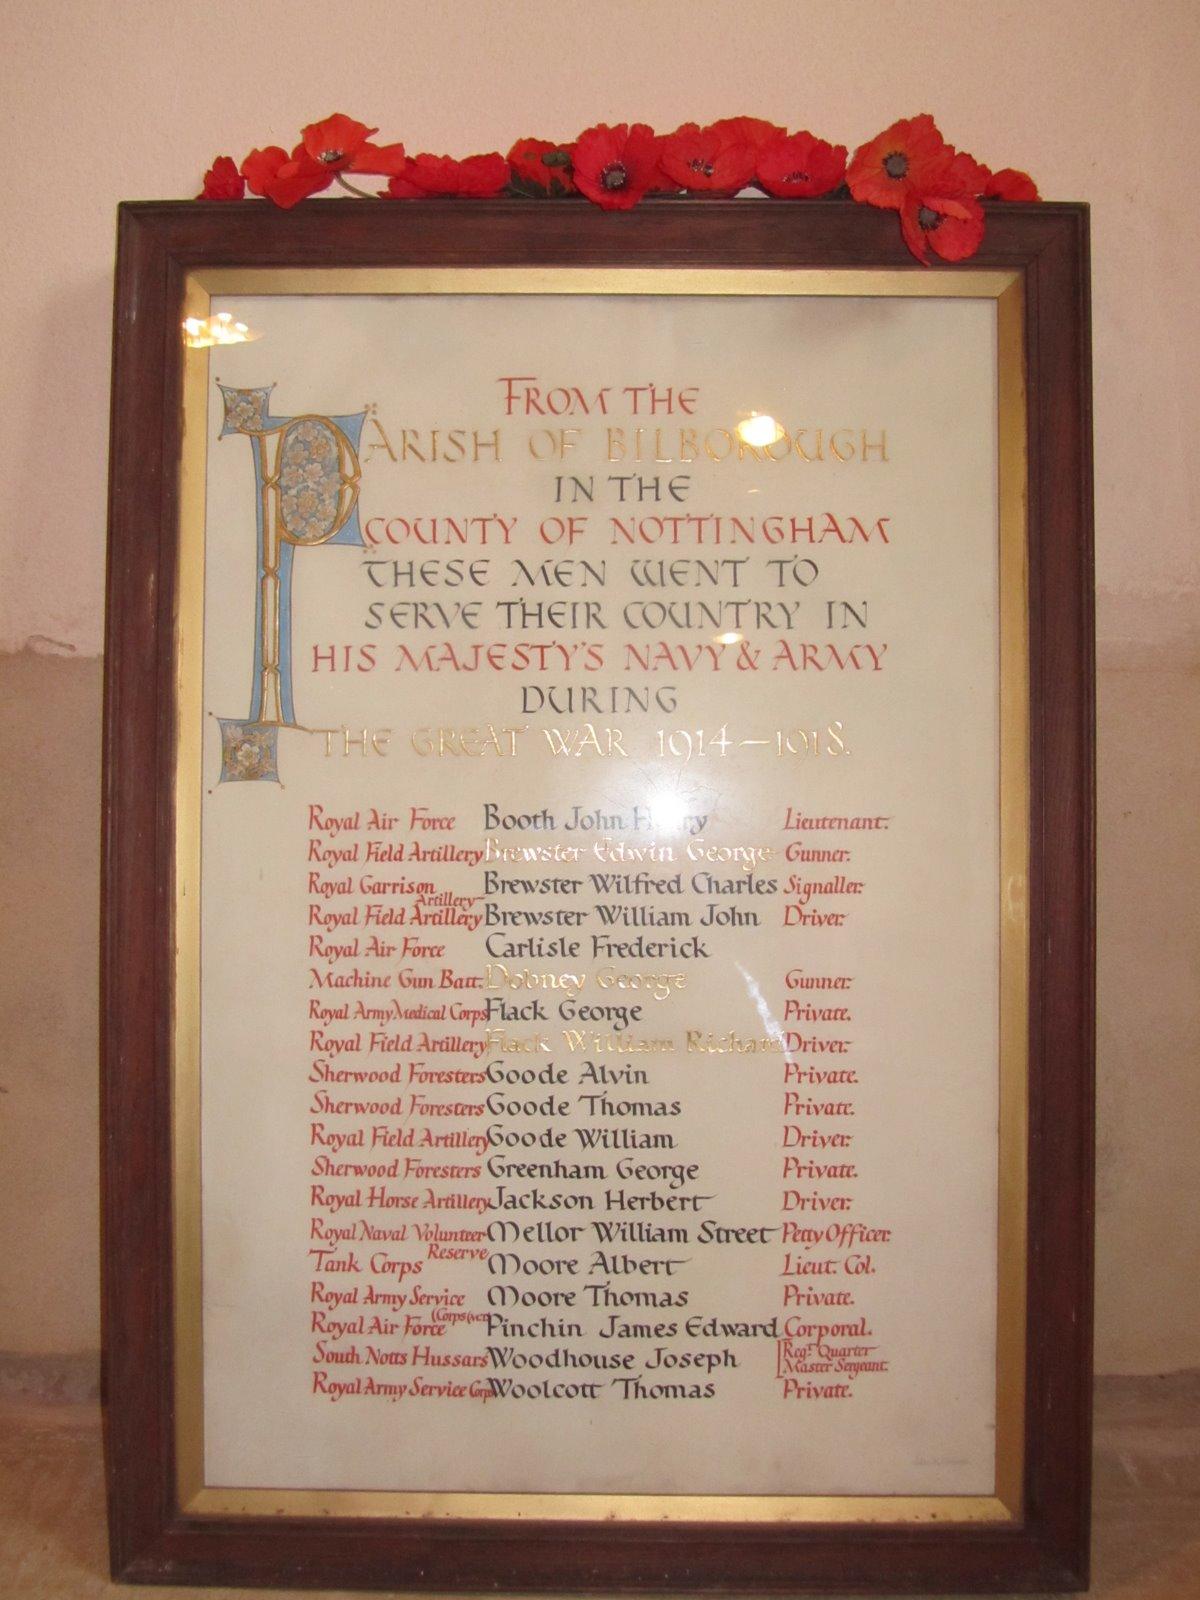 FROM THE
PARISH OF BILBOROUGH
IN THE
COUNTY OF NOTTINGHAM
THESE MEN WENT TO
SERVE THEIR COUNTRY IN
HIS MAJESTY'S NAVY & ARMY
DURING
THE GREAT WAR 1914-1918.
Royal Air Force Booth John Henry Lieutenant.
Royal Field Artillery Brewster Edwin George Gunner.
Royal Garrison Artillery Brewster Wilfred Charles Signaller.
Royal Field Artillery Brewster William John Driver.
Royal Air Force Carlisle Frederick
Machine Gun Batt. Dobney George Gunner.
Royal Army Medical Corps Flack George Private.
Royal Field Artillery Flack William Richard Driver.
Sherwood Foresters Goode Alvin Private.
Sherwood Foresters Goode Thomas Private.
Royal Field Artillery Goode William Driver.
Sherwood Foresters Greenham George Private.
Royal Horse Artillery Jackson Herbert Driver.
Royal Naval Volunteer Reserve Mellor William Street Petty Officer.
Tank Corps Moore Albert Lieut. Col.
Royal Army Service Corps Moore Thomas Private.
Royal Air Force Pinchin James Edward Corporal.
South Notts Hussars Woodhouse Joseph Regt. Quarter Master Sergeant.
Royal Army Service Corps Woolcott Thomas Private.